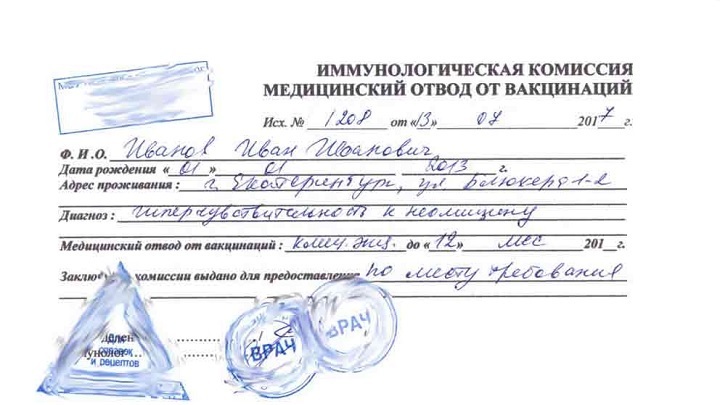 ИММУНОЛОГИЧЕСКАЯ КОМИССИЯ
МЕДИЦИНСКИЙ ОТВОД ОТ ВАКЦИНАЦИЙ
Исх. № 1208 от «13» 07 2017 г.
Ф. И .О. Иванов Иван Иванович
Дата рождения « 01 » 01 2013 г.
Адрес проживания : г. Екатеринбург, ул. Блюхера 1-2
Диагноз : гиперчувствительность к неомицину
Медицинский отвод от вакцинаций : до «12» мес 201__г.
комиссии выдано для предоставления по месту требования
для справок
и рецептов
ВРАЧ
ВРАЧ